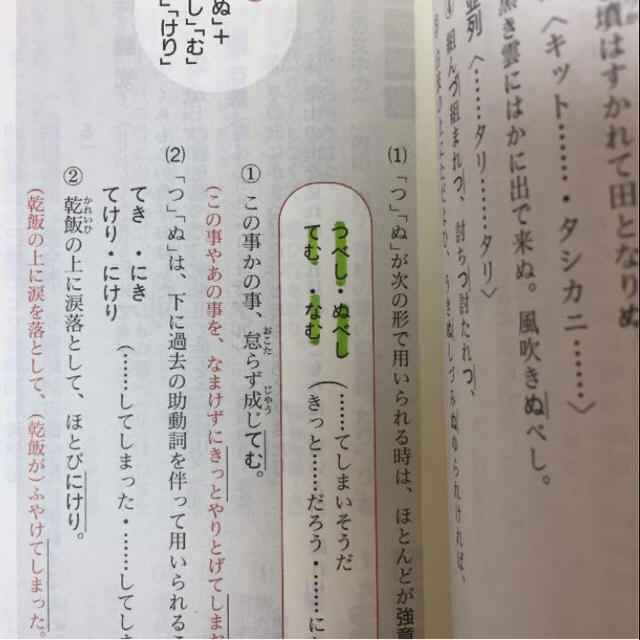 頃はすかれて田となりぬ
〈キット……・タシカニ……〉
黒き雲にはかに出で来ぬ。風吹きぬべし。
並列〈……タリ……タリ〉
④ 組んづ組まれつ、討ちつ討たれつ、
(1)「つ」「ぬ」が次の形で用いられる時は、ほとんどが強意
つべし・ぬべし (……てしまいそうだ
てむ ・なむ (きっと……だろう・……に
① この事かの事、怠らず成じてむ。
おこた じやう
(この事やあの事を、なまけずにきっとやりとげてしまお
(2)「つ」「ぬ」は、下に過去の助動詞を伴って用いられるこ
てき ・にき
てけり・にけり (……してしまった・……してしま
② 乾飯の上に涙落として、ほとびにけり。
かれいひ
(乾飯の上に涙を落として、(乾飯が)ふやけてしまった。
ぬ」+
し」「む」
「けり」